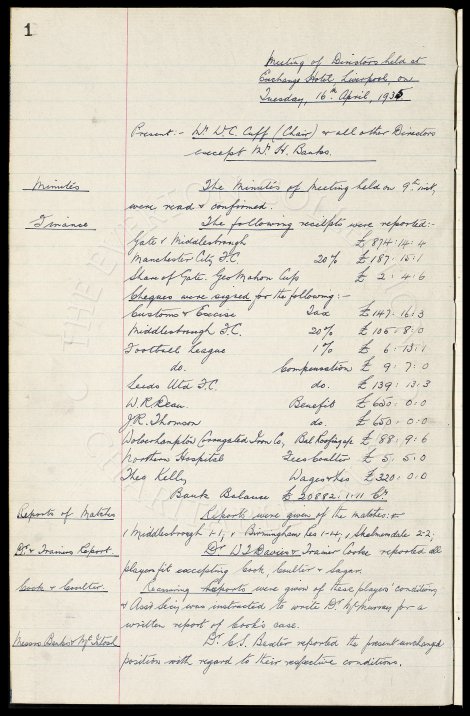 1
Meeting of Directors held at
Exchange Hotel, Liverpool, on
Tuesday, 16th April, 1935
Present:- Mr W.C. Cuff (Chair) & all other Directors
except Mr H. Banks.
Minutes The Minutes of Meeting held on 9th inst,
were read & confirmed.
Finance The following receipts were reported:-
Gate v Middlesbrough £874:14:4
Manchester City F.C. 20% £187:15:1
Share of Gate. Geo Mahon Cup £2:4:6
Cheques were signed for the following:-
Customs & Excise Tax £147:16:3
Middlesbrough F.C. 20% £105:8:0
Football League 1% £6:13:1
do. Compensation £9:7:0
Leeds Utd F.C. do. £139:13:3
W.R. Dean Benefit £650:0:0
J.R. Thomson do. £650:0:0
Wolverhampton Corrugated Iron Co, Bal Roofing £88:9:6
Northern Hospital Fees Coulter £5:5:0
Theo Kelly Wages &c £320:0:0
Bank Balance £20882:1:11 Cr
Reports of Matches Reports were given of the matches:-
v Middlesbrough 1-1, v Birmingham Res 1-4, v Skelmersdale 2-2.
Dr & Trainers Report. Dr D.J. Davies & Trainer Cooke reported all
players fit excepting Cook, Coulter & Sagar.
Cook & Coulter. Reports were given of these players' conditions
& Asst Secy was instructed to write Dr McMurray for a
written report of Cook's case.
Messrs Banks & McIntosh Dr. C.S. Baxter reported the present unchanged
position with regard to their respective conditions.